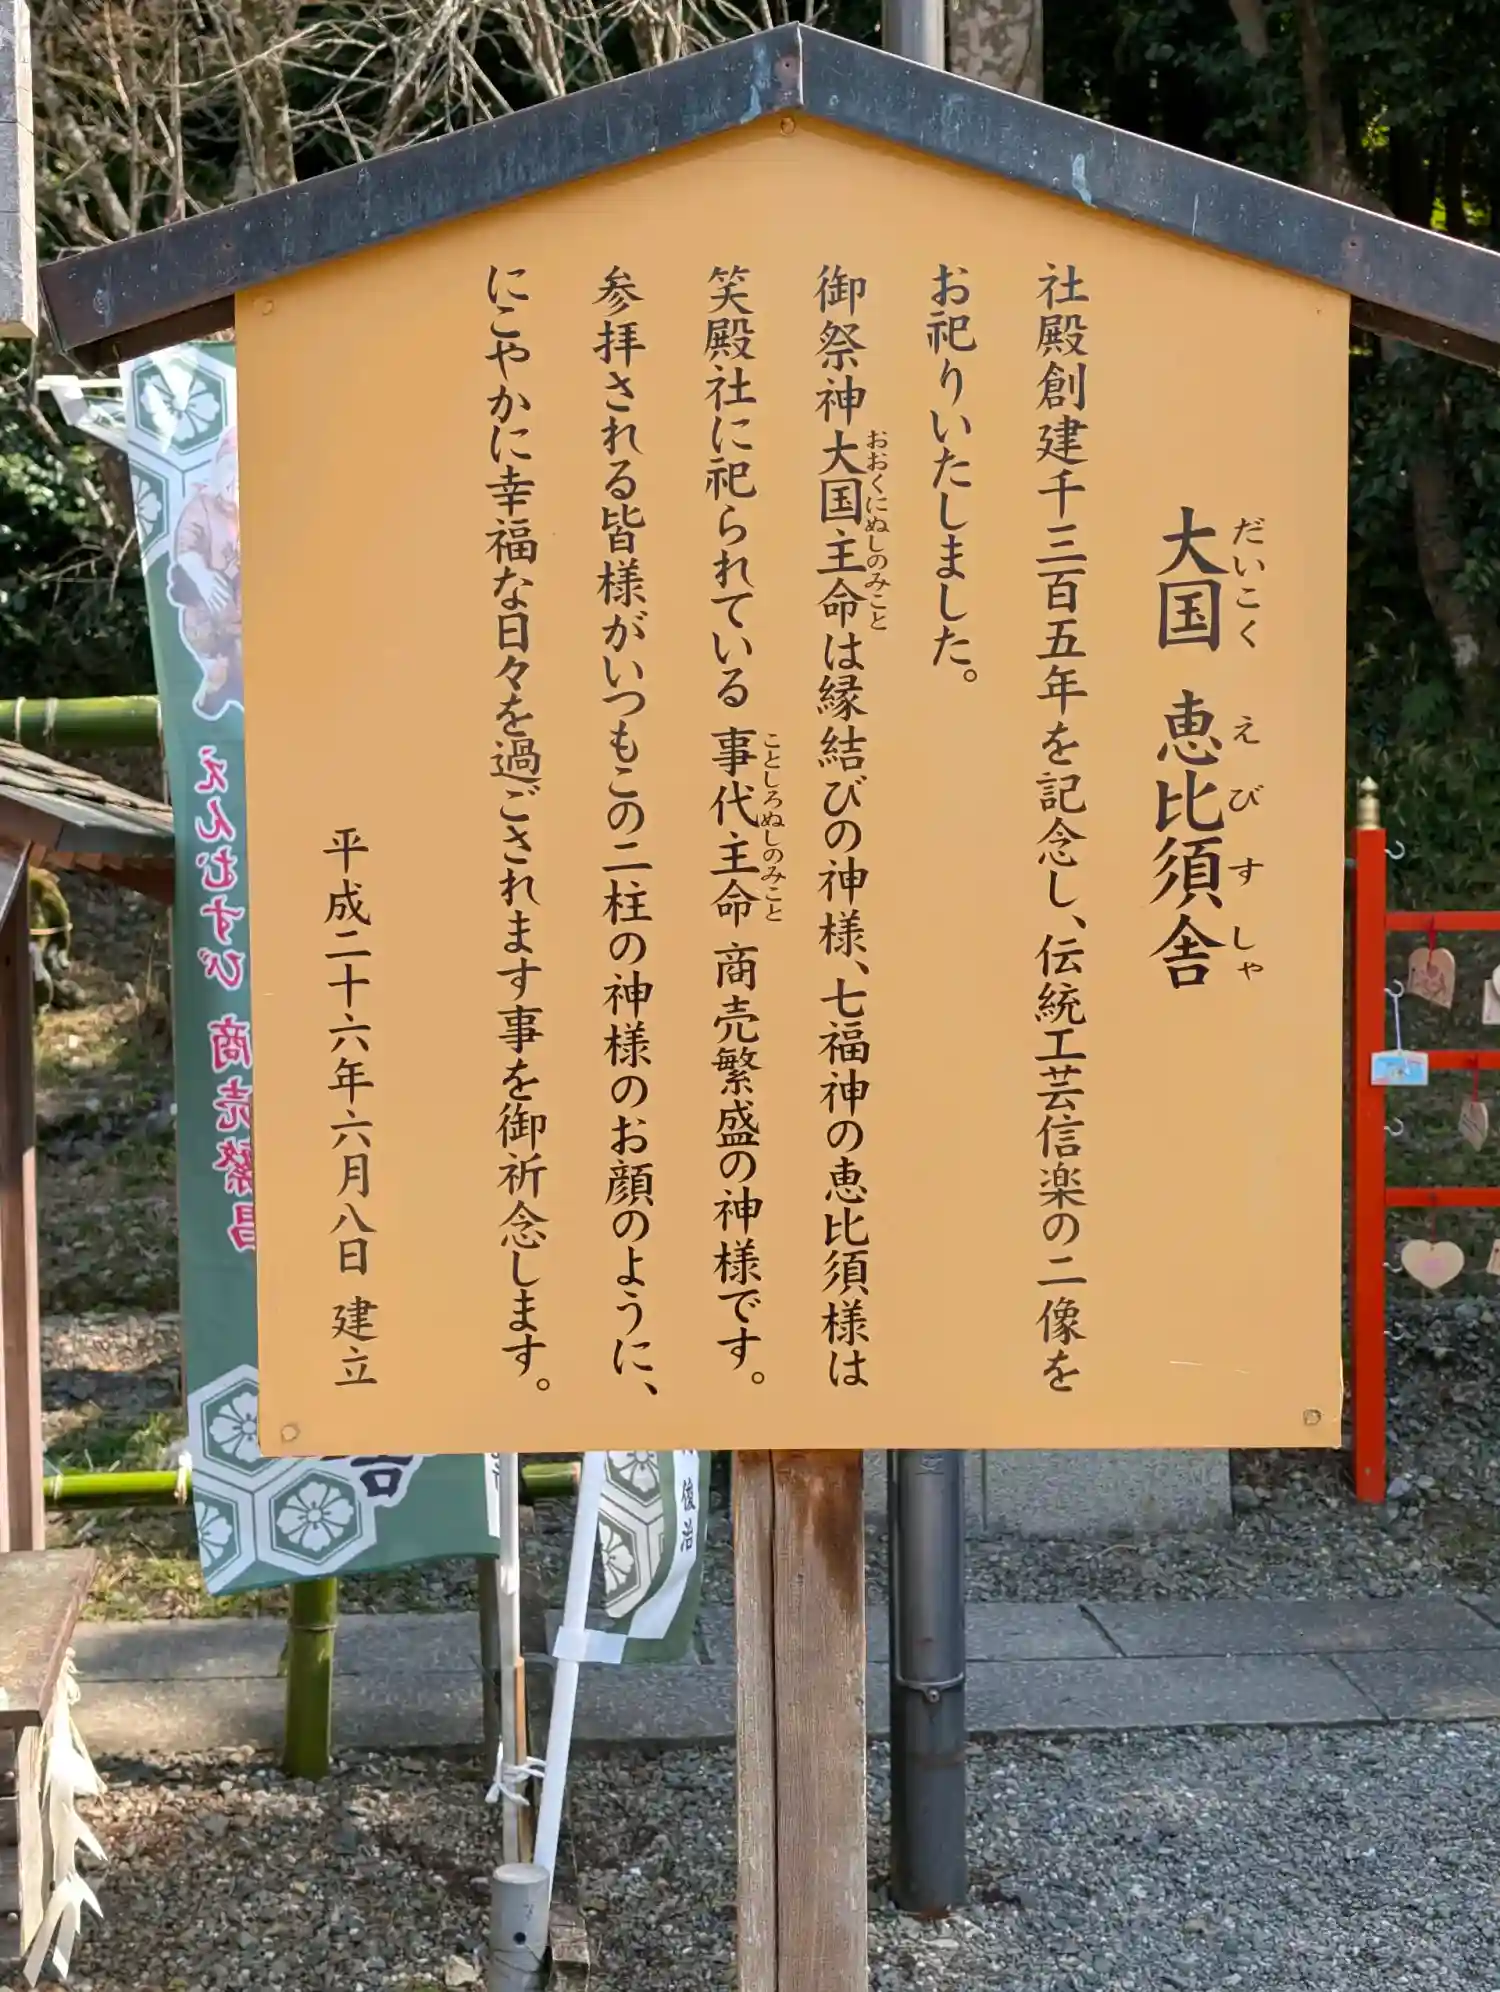 大国 恵比須舎
だいこく えびすしゃ
社殿創建千三百五年を記念し、伝統工芸信楽の二像を
お祀りいたしました。
御祭神大国主命は縁結びの神様、七福神の恵比須様は
おおくにぬしのみこと
笑殿社に祀られている 事代主命 商売繁盛の神様です。
ことしろぬしのみこと
参拝される皆様がいつもこの二柱の神様のお顔のように、
にこやかに幸福な日々を過ごされます事を御祈念します。
平成二十六年六月八日 建立
えんむすび 商売繁昌
俊治